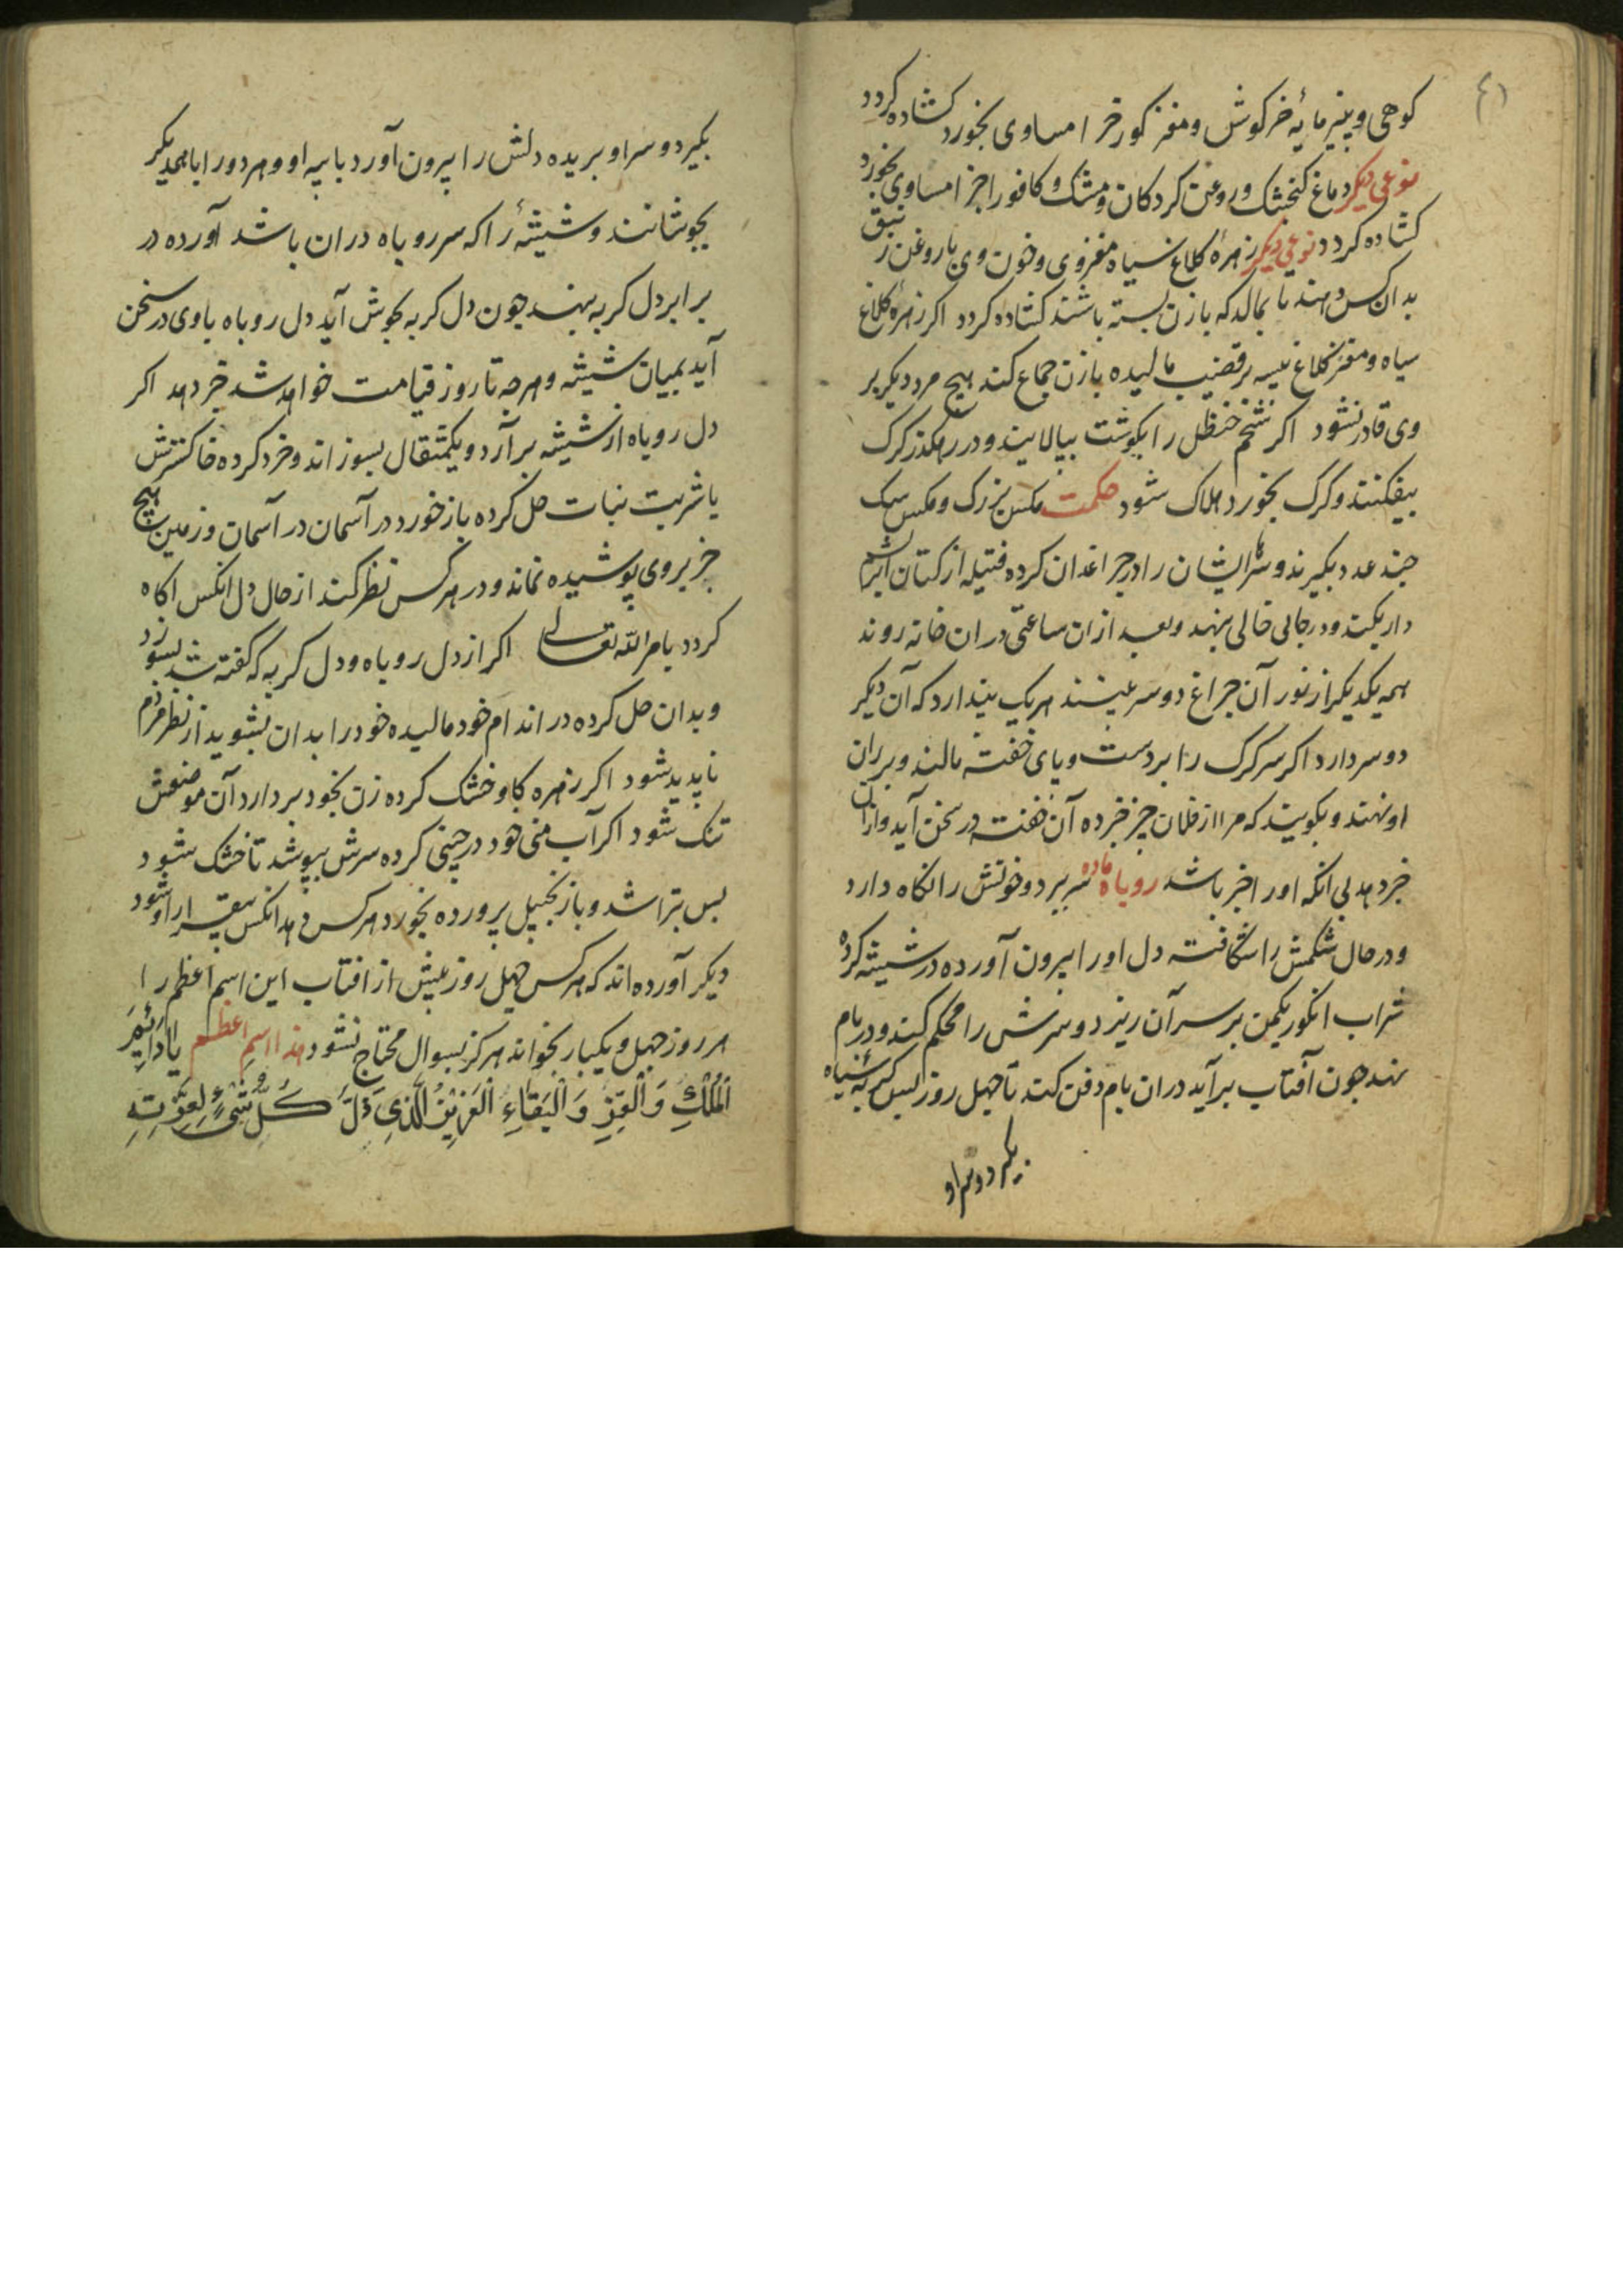 ٤١
کوهی و پنیر مایهٔ خرکوش و مغز کورخر امساوی بخورد کشاده کردد
نوعی دیکر دماغ کنجشک و روغن کردکان و مشک و کافور اجزا مساوی بخورد
کشاده کردد نوعی دیکر زهرهٔ کلاغ سیاه مغز وی و خون وی با روغن زنبق
بدان کس دهند تا بمالد که با زن بسته باشند کشاده کردد اکر زهرهٔ کلاغ
سیاه و مغز کلاغ پیسه بر قضیب مالیده با زن جماع کند هیچ مرد دیکر بر
وی قادر نشود اکر شخم حنظل را بکوشت بیالایند و در رهکذر کرک
بیفکنند و کرک بخورد هلاک شود حکمت مکس بزرک و مکس سک
چند عدد بکیرند و سر ایشان را در چراغدان کرده فتیله از کتان
دار بکیند و در جایی خالی بنهد و بعد از آن ساعتی در ان خانه روند
همه یکدیکر از نور آن چراغ دو سر بینند هر یک پندارد که آن دیکر
دو سر دارد اکر سر کرک را بر دست و پای خفته مالند و بر ران
او نهند و بکویند که مرا از فلان چیز خبر ده آن خفته در سخن آید و از ان
خبر دهد بی انکه او را خبر باشد روباه ماده سر ببرد و خونش را نکاه دارد
و در حال شکمش را شکافته دل او را بیرون آورده در شیشه کرده
شراب انکور یکمن بر سر آن ریزد و سرش را محکم کند و در بام
نهد چون آفتاب برآید در ان بام دفن کند تا چهل روز پس کربهٔ سیاه
بکیرد و سر او
بکیرد و سر او بریده دلش را بیرون آورد با پیه او و هر دو را با همدیکر
بجوشانند و شیشهٔ را که سر روباه دران باشد آورده در
برابر دل کربه بنهد چون دل کربه بجوش آید دل روباه با وی در سخن
آید بمیان شیشه و هرچه تا روز قیامت خواهد شد خبر دهد اکر
دل روباه از شیشه برآرد و یکمثقال بسوزاند و خرد کرده خاکسترش
با شربت نبات حل کرده باز خورد در آسمان در آسمان و زمین هیچ
چز بر وی پوشیده نماند و در هر کس نظر کند از حال دل انکس اکاه
کردد بامر الله تعالی اکر از دل روباه و دل کربه که کفته شد بسوزد
و بدان حل کرده در اندام خود مالیده خود را بدان بشوید از نظر مردم
ناپدید شود اکر زهره کاو خشک کرده زن بخود بردارد آن موضعش
تنک شود اکر آب منی خود در چینی کرده سرش بپوشد تا خشک شود
پس بتراشد و با زنجبیل پرورده بخورد هر کس دهد انکس بیقرار او شود
دیکر آورده اند که هر کس چهل روز پیش از افتاب این اسم اعظم را
هر روز چهل و یکبار بخواند هرکز بسوال محتاج نشود هذا اسم اعظم یا دائم
الْمُلْكِ وَ الْعِزِّ وَ الْبَقَاءِ الْعَزِیزُ الَّذِی ذَلَّ کُلُّ شَیْءٍ لِعِزَّتِهِ